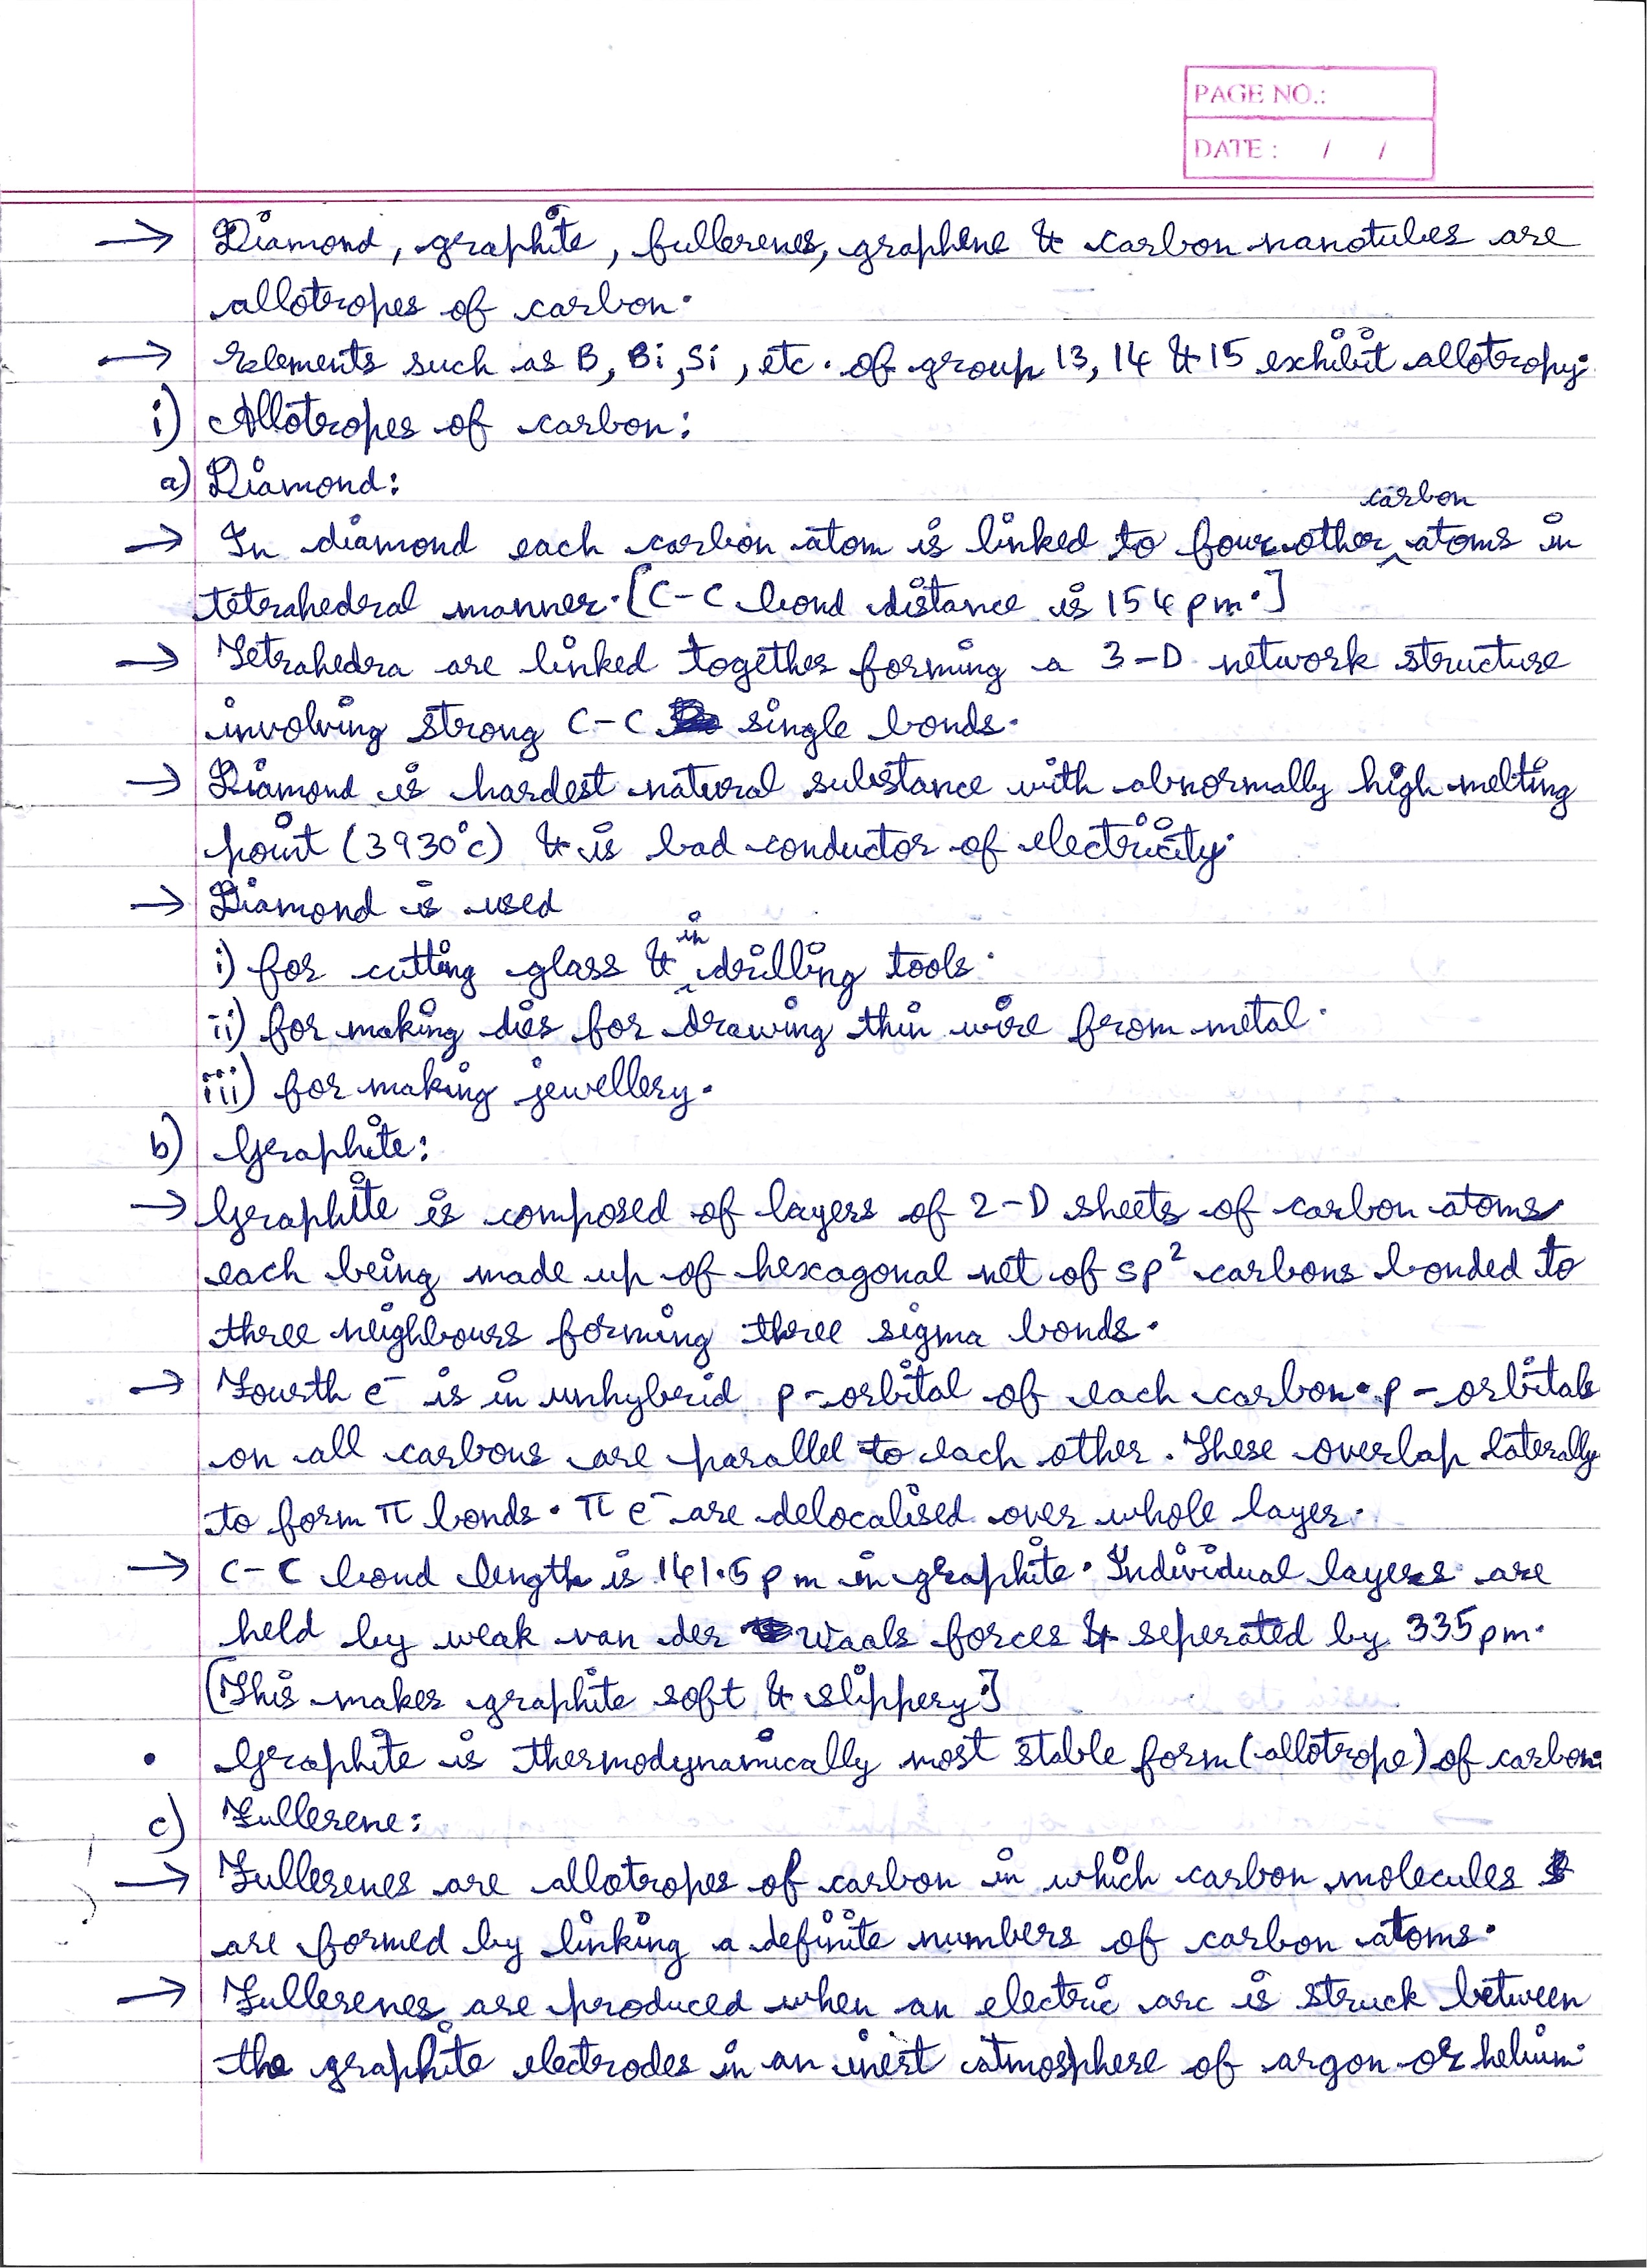 PAGE NO.:
DATE : / /
→ Diamond, graphite, fullerenes, graphene & carbon nanotubes are
allotropes of carbon.
→ Elements such as B, Bi, Si, etc. of group 13, 14 & 15 exhibit allotropy.
i) Allotropes of carbon:
a) Diamond:
carbon
→ In diamond each carbon atom is linked to four other ^ atoms in
tetrahedral manner. [C-C bond distance is 154 pm.]
→ Tetrahedra are linked together forming a 3-D network structure
involving strong C-C single bonds.
→ Diamond is hardest natural substance with abnormally high melting
point (3930°c) & is bad conductor of electricity.
→ Diamond is used
in
i) for cutting glass & ^ drilling tools.
ii) for making dies for drawing thin wire from metal.
iii) for making jewellery.
b) Graphite:
→ Graphite is composed of layers of 2-D sheets of carbon atoms
each being made up of hexagonal net of sp² carbons bonded to
three neighbours forming three sigma bonds.
→ Fourth e⁻ is in unhybrid p-orbital of each carbon. p-orbitals
on all carbons are parallel to each other. These overlap laterally
to form π bonds. π e⁻ are delocalised over whole layer.
→ C-C bond length is 141.5 pm in graphite. Individual layers are
held by weak van der Waals forces & seperated by 335 pm.
[This makes graphite soft & slippery.]
• Graphite is thermodynamically most stable form (allotrope) of carbon.
c) Fullerene:
→ Fullerenes are allotropes of carbon in which carbon molecules
are formed by linking a definite numbers of carbon atoms.
→ Fullerenes are produced when an electric arc is struck between
the graphite electrodes in an inert atmosphere of argon or helium.